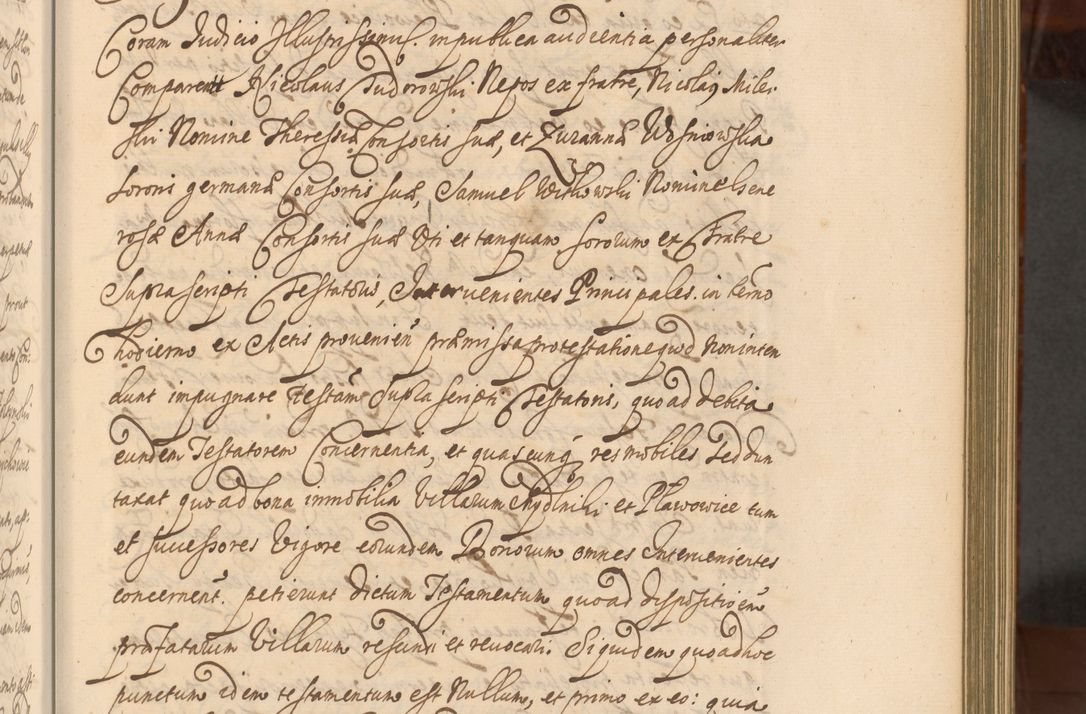 Coram Judicio Illustrissimi. in publica audientia personaliter
Comparent Nicolaus Tudorowski Nepos ex fratre, Nicolai Mile.
ski Nomine Theressiæ Consortis suæ, et Zuzannæ Wisniowska
sororis germanæ Consortis suæ, Samuel Witkowski Nomine Gene
rosæ Annæ Consortis suæ Uti et tanquam sororum ex Fratre
Suprascripti Testatoris, Intervenientes Principales. in termo
hodierno ex Actis provenien præmissa protestatione quod Non inten
dunt impugnare Testam Suprascripti Testatoris, quo ad debita
eundem Testatorem Concernentia, et quascunq res mobiles Sed dun
taxat quo ad bona immobilia Villarum et Plawowice tum
et successores Vigore eorundem Bonorum omnes Intervenientes
concernent. petierunt dictum Testamentum quo ad dispositioem
præfatarum Villarum rescindi et revocari. Siquidem quo ad hoc
punctum idem testamentum est Nullum, et primo ex eo: quia